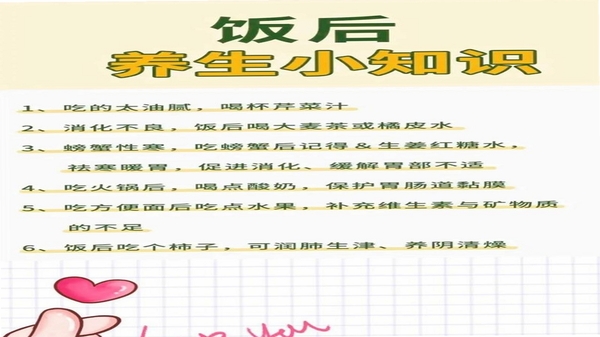 饭后
养生小知识
1、吃的太油腻，喝杯芹菜汁
2、消化不良，饭后喝大麦茶或橘皮水
3、螃蟹性寒，吃螃蟹后记得&生姜红糖水，
祛寒暖胃，促进消化、缓解胃部不适
4、吃火锅后，喝点酸奶，保护胃肠道黏膜
5、吃方便面后吃点水果，补充维生素与矿物质
的不足
6、饭后吃个柿子，可润肺生津、养阴清燥
You